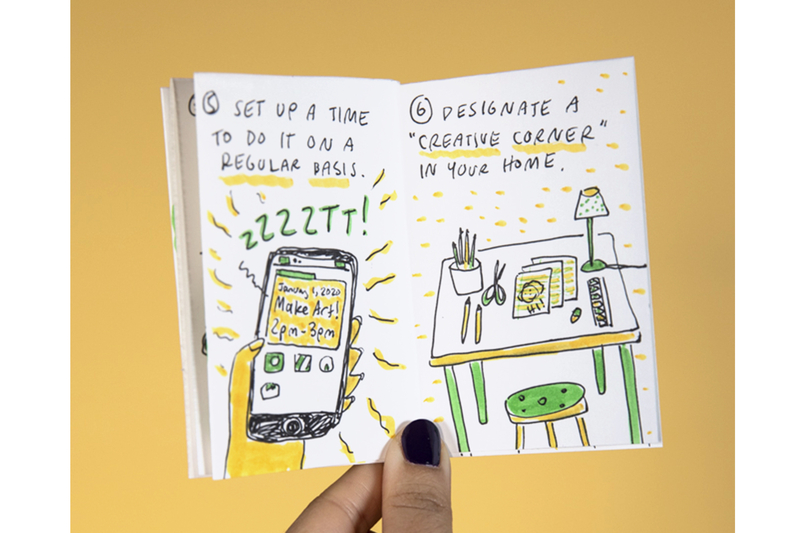 5 SET UP A TIME
TO DO IT ON A
REGULAR BASIS.
ZZZZTT!
January 1, 2020
Make Art!
2pm-3pm
6 DESIGNATE A
"CREATIVE CORNER"
IN YOUR HOME.